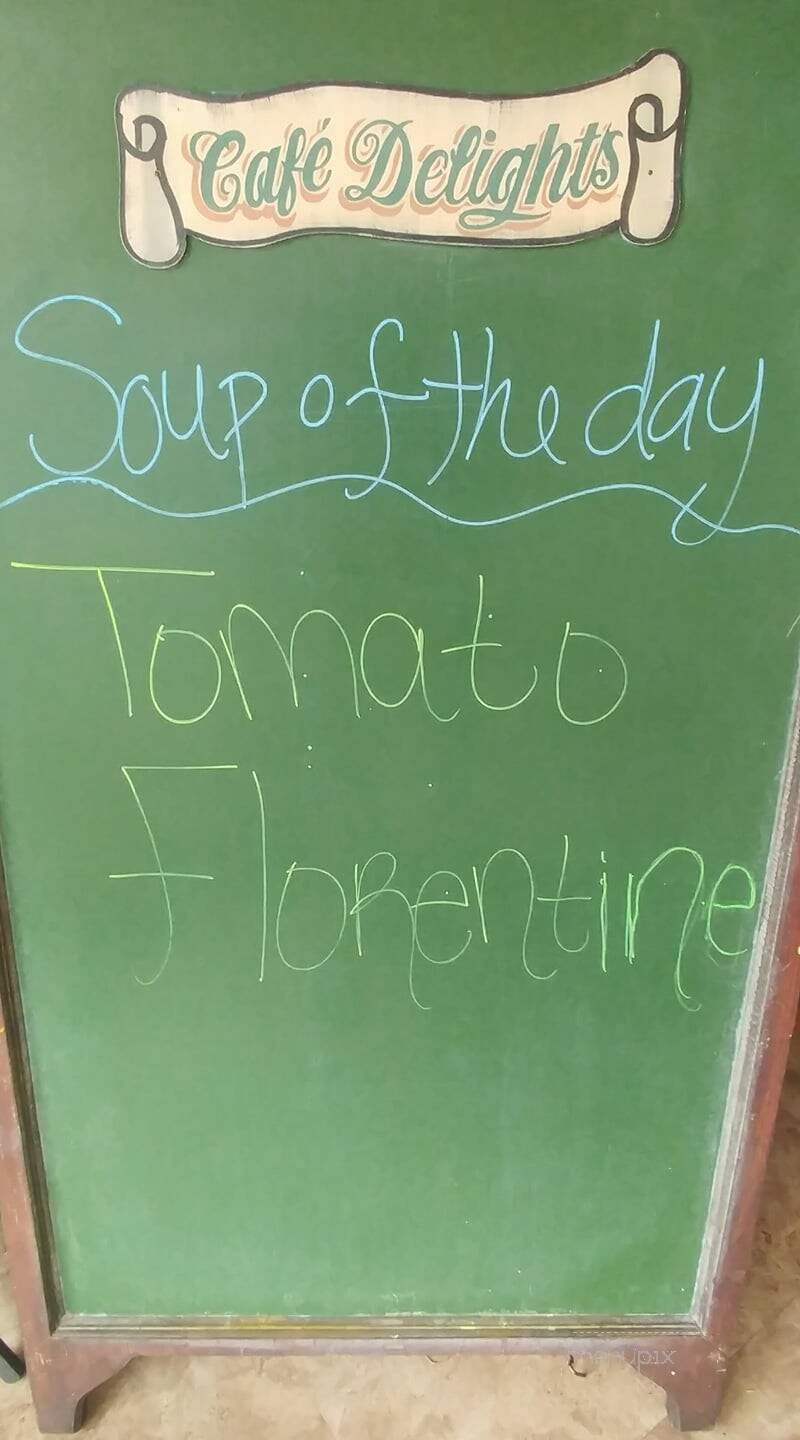 Café Delights
Soup of the day
Tomato
Florentine
menupix